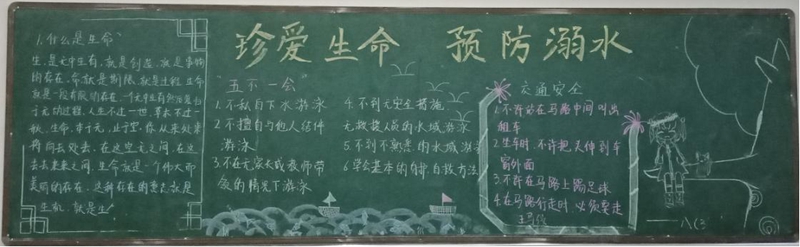 珍爱生命 预防溺水
1.什么是生命
生,是无中生有,就是创造,就是事物
的存在,命就是制限,就是生程,生命
就是一段有限的存在,一个无中生有
于无的过程,人生不过一世,草木不过一
秋,生命,本于无,止于空,你从来处来
再向去处去,在这空无之间,在这
去去来来之间,生命就是一个伟大而
美丽的存在,这种存在的意志就是
生机,就是生
五不一会
1.不私自下水游泳
2.不擅自与他人结伴
游泳
3.不在无家长或教师带
领的情况下游泳
4.不到无安全措施,
无救援人员的水域游泳
5.不到不熟悉的水域游泳
6.学会基本的自护,自救方法
交通安全
1.不许站在马路中间叫出
租车
2.坐车时,不许把头伸到车
窗外面
3.不许在马路上踢足球
4.在马路行走时必须要走
八(3